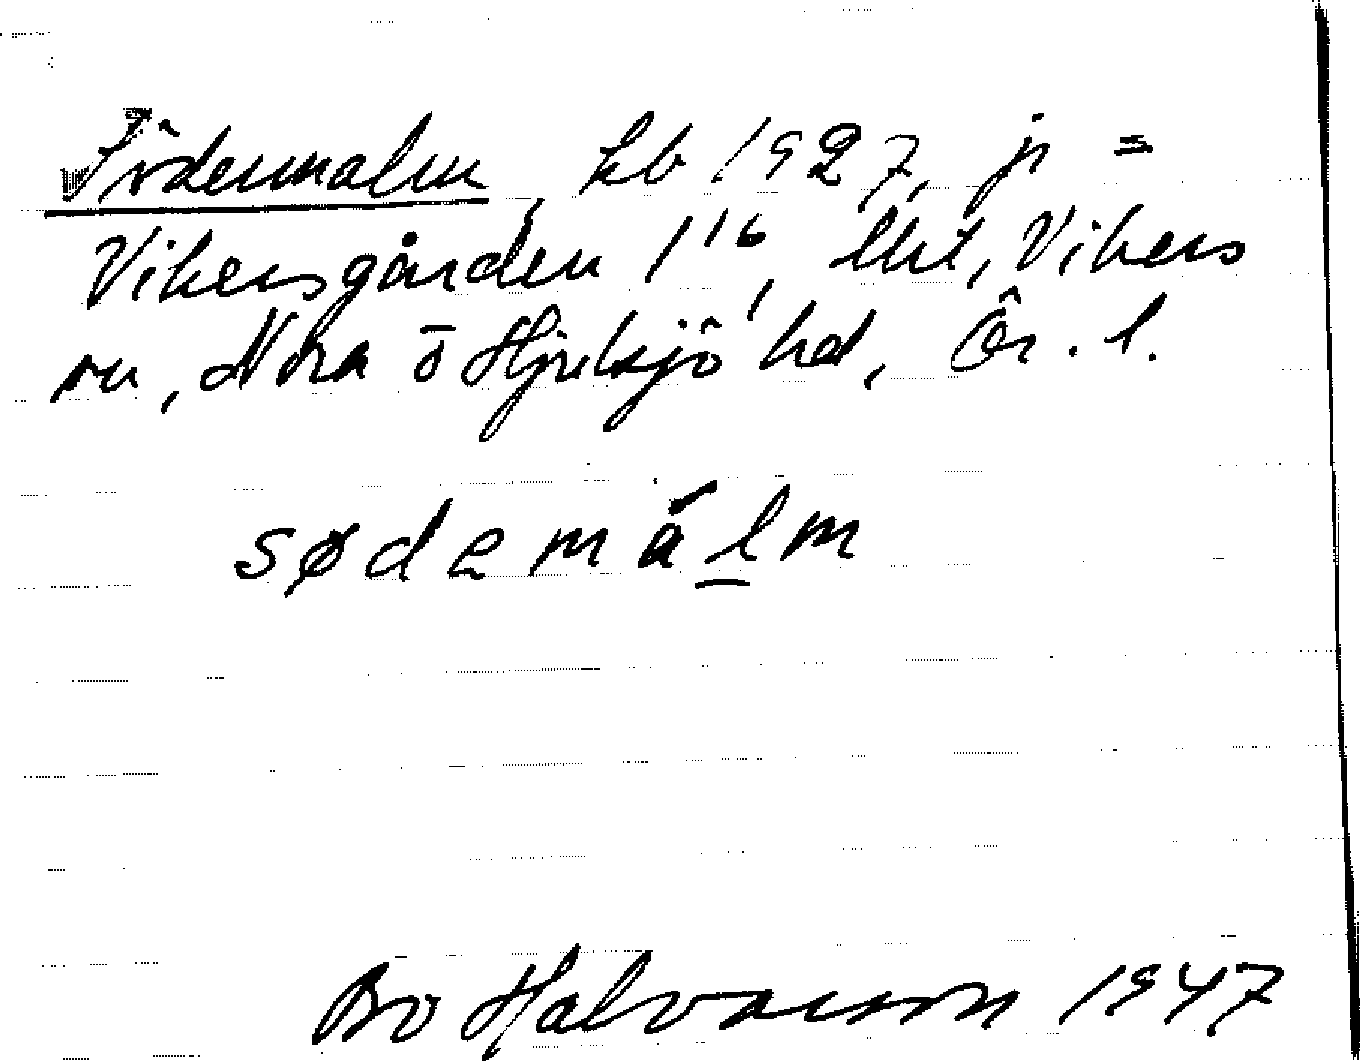 Södermalm, kb 1927, jr =
Vikersgården 1¹⁶, lht, Vikers
sn, Nora o Hjulsjö hd, Ör. l.
sødemálm
Bo Halvarson 1947